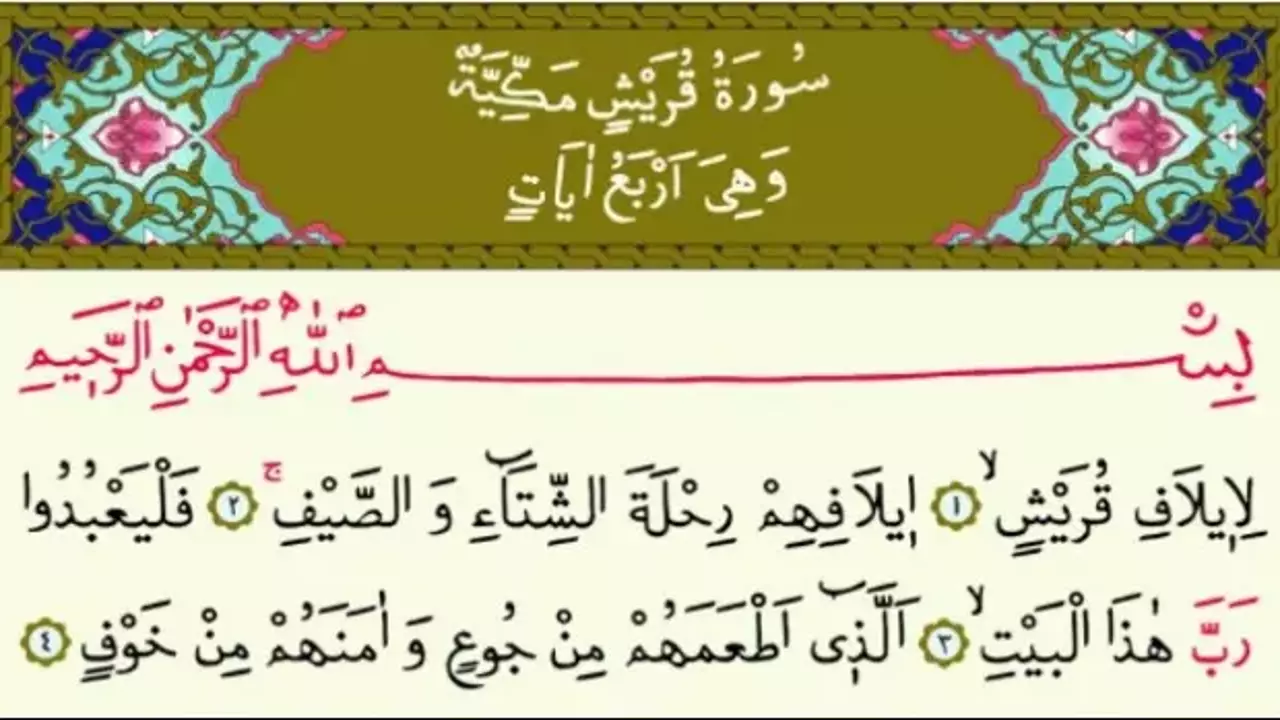 سُورَةُ قُرَيْشٍ مَكِّيَّةٌ
وَهِىَ اَرْبَعُ اٰيَاتٍ
بِسْمِ اللّٰهِ الرَّحْمٰنِ الرَّحِيمِ
لِاِيلَافِ قُرَيْشٍۙ ﴿١﴾ اِيلَافِهِمْ رِحْلَةَ الشِّتَٓاءِ وَ الصَّيْفِۚ ﴿٢﴾ فَلْيَعْبُدُوا
رَبَّ هٰذَا الْبَيْتِۙ ﴿٣﴾ اَلَّذٖٓى اَطْعَمَهُمْ مِنْ جُوعٍ وَ اٰمَنَهُمْ مِنْ خَوْفٍ ﴿٤﴾